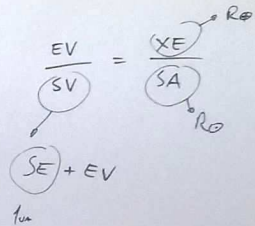 EV / SV = XE / SA
R⊕
R⊙
SE + EV
1 UA